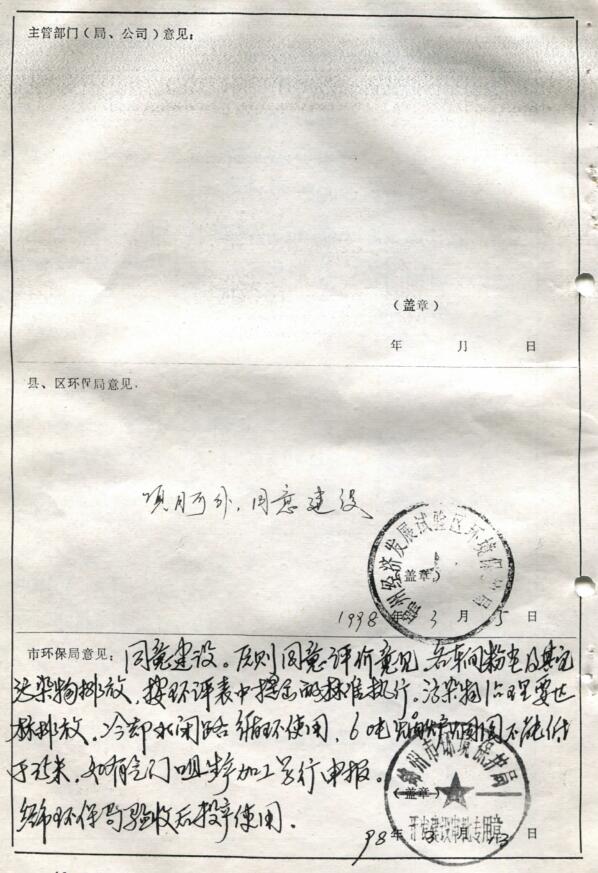 主管部门（局、公司）意见：
（盖章）
年 月 日
县、区环保局意见.
同意建设
锦州经济发展试验区环境保护局
（盖章）
1998年3月5日
市环保局意见：同意建设。原则同意评价意见，各车间粉尘及其它
污染物排放，按环评表中提出的标准执行。污染物治理要达
标排放，冷却水闭路循环使用，6吨
如有 生产加工另行申报。
经市环保局验收后投产使用.
锦州市环境保护局
（盖章）
开发建设审批专用章
98年 3 日